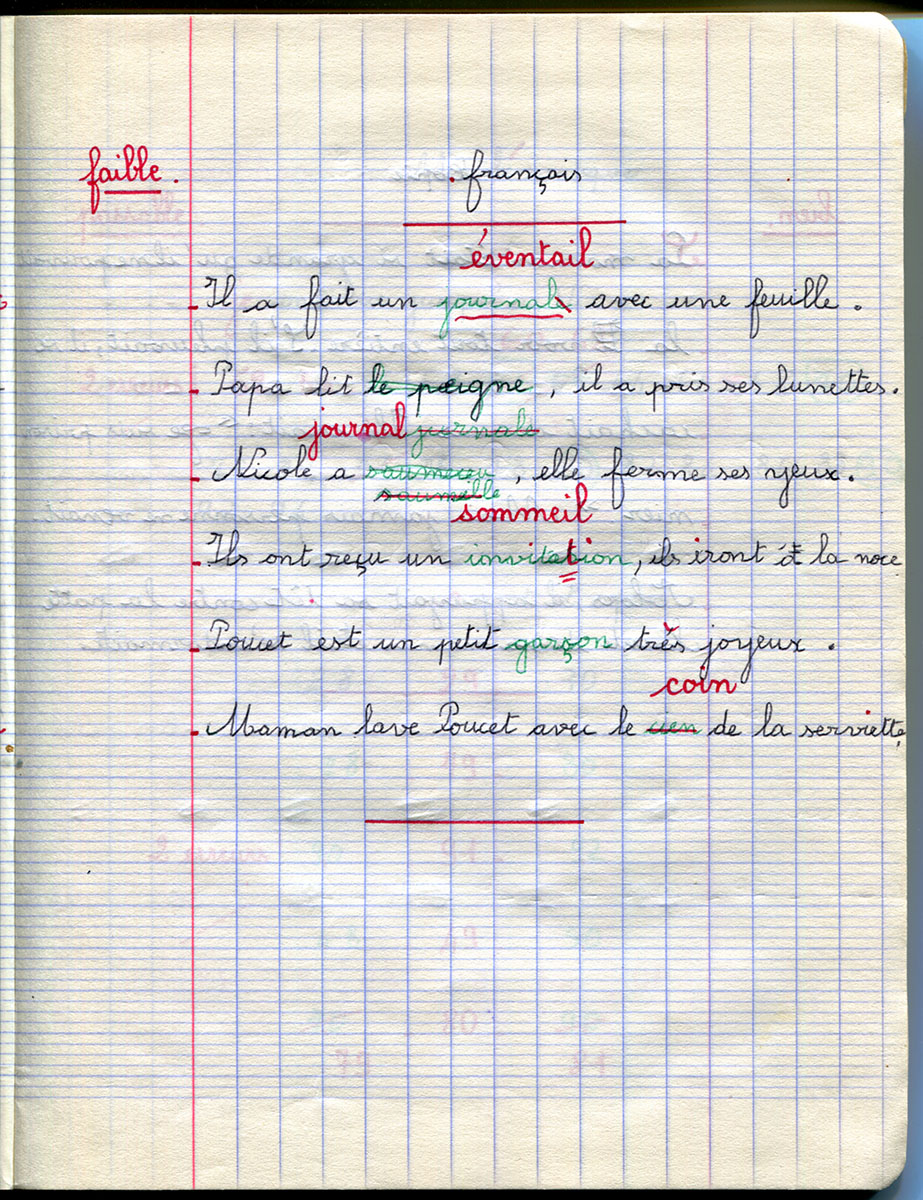 faible.
français
éventail
Il a fait un journale avec une feuille.
Papa lit le peigne, il a pris ses lunettes.
journal journale
Nicole a, elle ferme ses yeux.
saumelle
sommeil
Ils ont reçu un invitation, ils iront à la noce
Poucet est un petit garçon très joyeux.
coin
Maman lave Poucet avec le cien de la serviette